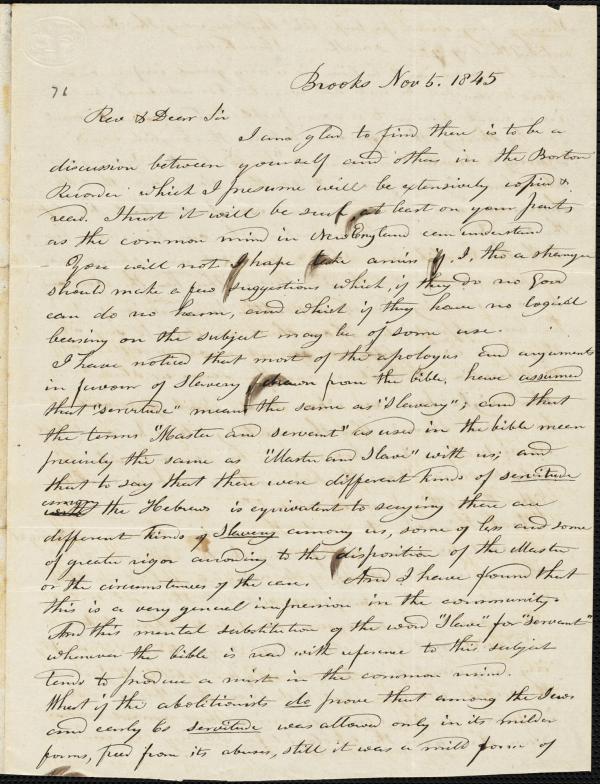 Brooks Nov 5. 1845
76
Rev & Dear Sir
I am glad to find there is to be a
discussion between yourself and others in the Boston
Recorder which I presume will be extensively copied &
read. I trust it will be such, at least on your part,
as the common mind in New England can understand
You will not I hope take amiss if, I, tho a stranger
should make a few suggestions which, if they do no good
can do no harm, and which if they have no logical
bearing on the subject may be of some use.
I have noticed that most of the apologies and arguments
in favour of Slavery, drawn from the bible, have assumed
that "servitude" means the same as "Slavery"; and that
the terms "Master and servant" as used in the bible mean
precisely the same as "Master and Slave" with us; and
that to say that there were different kinds of servitude
among the Hebrews is equivalent to saying there are
different kinds of Slavery among us, some of less and some
of greater rigor according to the disposition of the Master
or the circumstances of the case. And I have found that
this is a very general impression in the community.
And this mental substitution of the word "Slave" for "servant"
wherever the bible is read with reference to this subject
tends to produce a mist in the common mind.
What if the abolitionists do prove that among the Jews
and early Cs servitude was allowed only in its milder
forms, freed from its abuses, still it was a mild form of